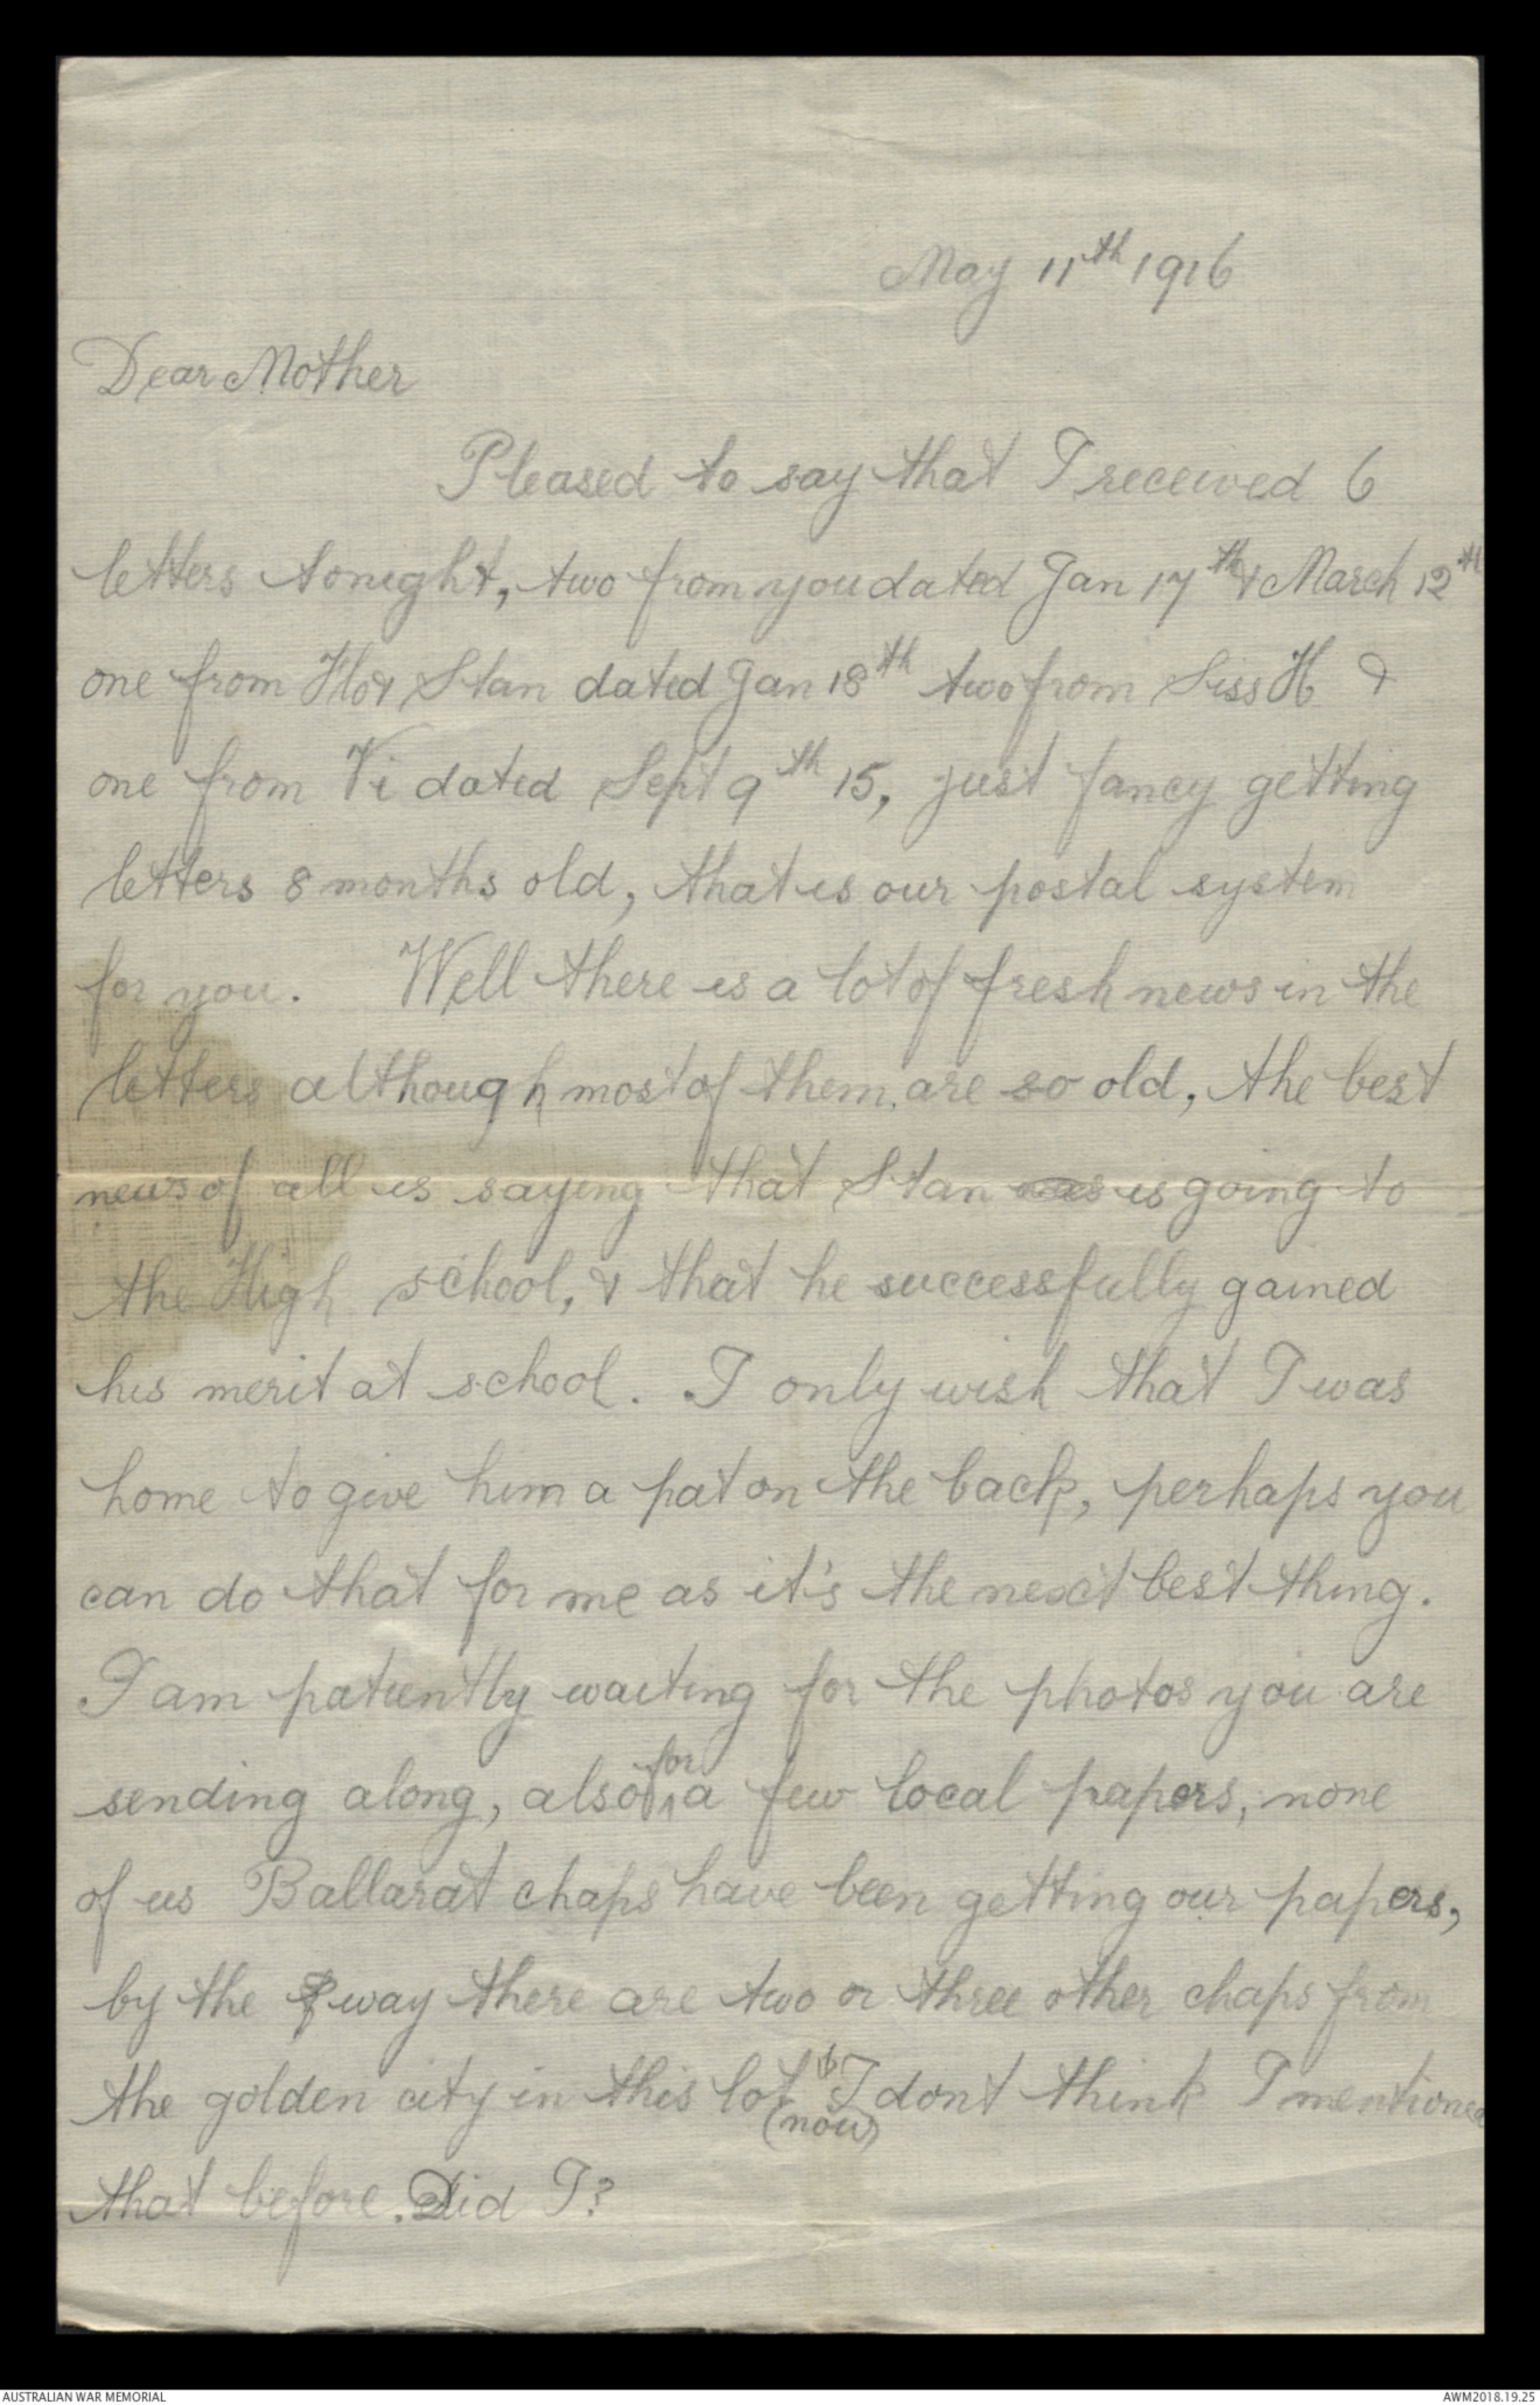 May 11th 1916
Dear Mother
Pleased to say that I received 6
letters tonight, two from you dated Jan 17th & March 12th
one from Flo & Stan dated Jan 18th two from Siss H &
one from Vi dated Sept 9th 15, just fancy getting
letters 8 months old, that is our postal system
for you. Well there is a lot of fresh news in the
letters although most of them are so old, the best
news of all is saying that Stan was is going to
the High school, & that he successfully gained
his merit at school. I only wish that I was
home to give him a pat on the back, perhaps you
can do that for me as it's the next best thing.
I am patiently waiting for the photos you are
sending along, also for a few local papers, none
of us Ballarat chaps have been getting our papers,
by the way there are two or three other chaps from
the golden city in this lot (now) I dont think I mentioned
that before. Did I?
AUSTRALIAN WAR MEMORIAL
AWM2018.19.25